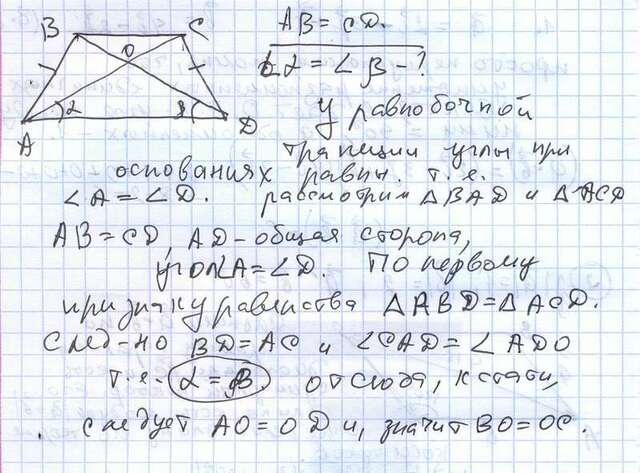 B C
O
AB = CD.
∠α = ∠β - ?
α β
A D
У равнобочной
трапеции углы при
основаниях равны. т.е.
∠A = ∠D. рассмотрим △BAD и △ACD
AB = CD, AD - общая сторона,
угол ∠A = ∠D. По первому
признаку равенства △ABD = △ACD.
След-но BD = AC и ∠CAD = ∠ADO
т.е. α = β. отсюда, кстати,
следует AO = OD и, значит BO = OC.